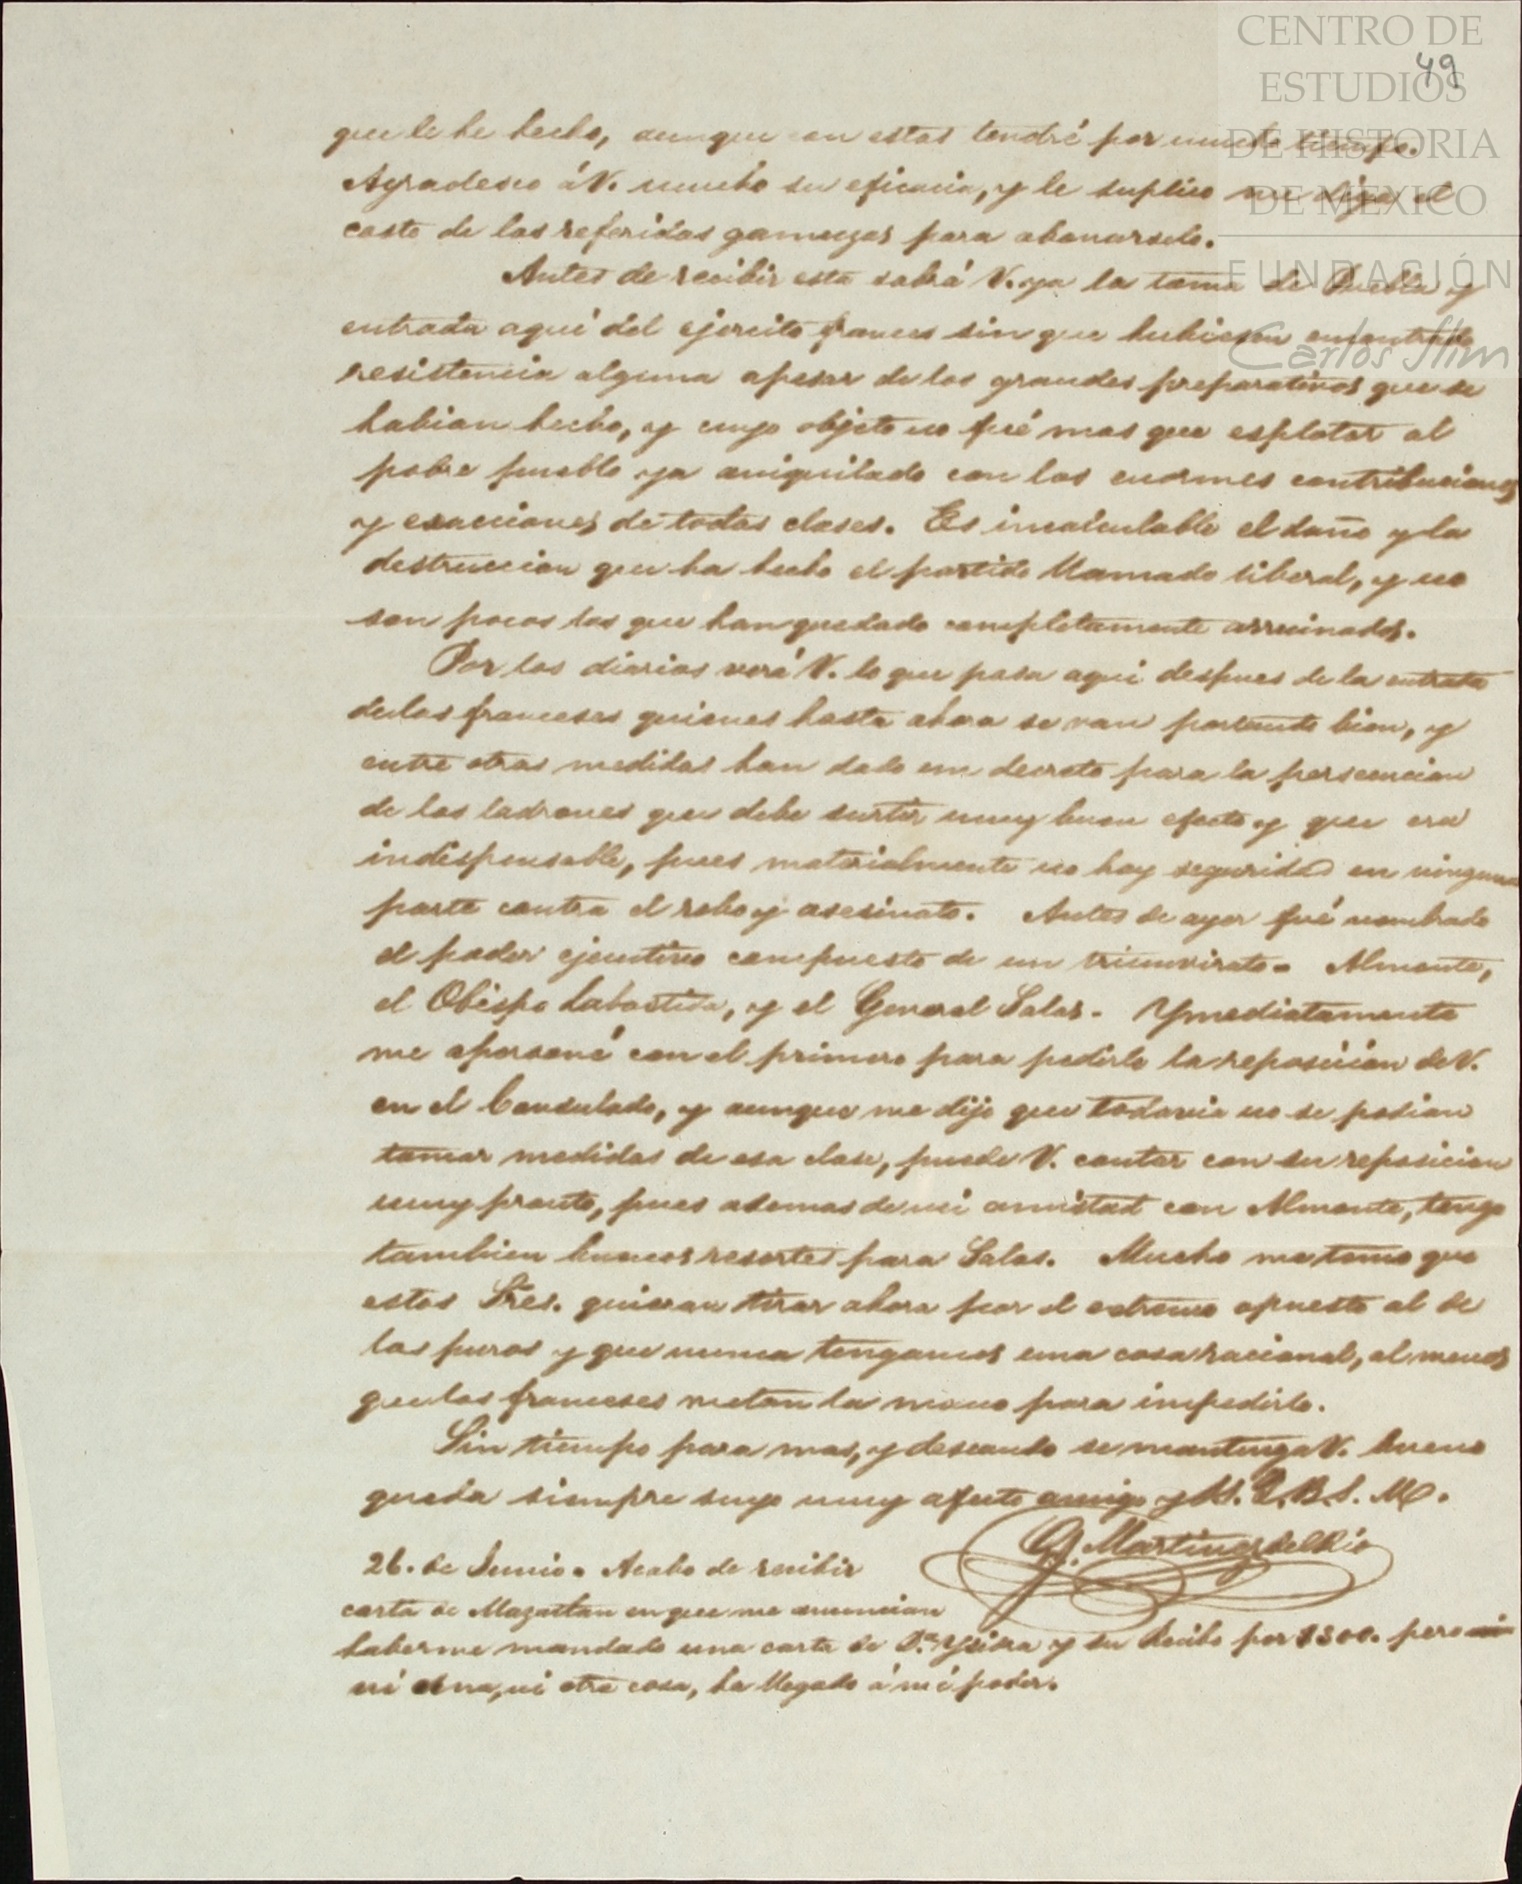 CENTRO DE
ESTUDIOS
DE HISTORIA
DE MÉXICO
FUNDACIÓN
Carlos Slim
49
que le he hecho, aunque con estas tendré por mucho tiempo.
Agradesco á V. mucho su eficacia, y le suplico me diga el
costo de las referidas gamuzas para abonarselo.
Antes de recibir esta sabrá V. ya la toma de Puebla y
entrada aquí del ejercito frances sin que hubiesen encontrado
resistencia alguna apesar de los grandes preparativos que se
habian hecho, y cuyo objeto no fué mas que esplotar al
pobre pueblo ya aniquilado con las enormes contribuciones
y exacciones de todas clases. Es incalculable el daño y la
destruccion que ha hecho el partido llamado liberal, y no
son pocos los que han quedado completamente arruinados.
Por los diarios verá V. lo que pasa aqui despues de la entrada
de los franceses quienes hasta ahora se van portando bien, y
entre otras medidas han dado un decreto para la persecucion
de los ladrones que debe surtir muy buen efecto y que era
indispensable, pues materialmente no hay seguridad en ninguna
parte contra el robo y asesinato. Antes de ayer fué nombrado
el poder ejecutivo compuesto de un triunvirato. Almonte,
el Obispo Labastida, y el General Salas. Ymediatamente
me apersoné con el primero para pedirle la reposicion de V.
en el Consulado, y aunque me dijo que todavia no se podian
tomar medidas de esa clase, puede V. contar con su reposicion
muy pronto, pues ademas de mi amistad con Almonte, tengo
tambien buenos resortes para Salas. Mucho me temo que
estos Sres. quieran tirar ahora por el estremo opuesto al de
los puros y que nunca tengamos una cosa racional, al menos
que los franceses metan la mano para impedirlo.
Sin tiempo para mas, y deseando se mantenga V. bueno
queda siempre suyo muy afecto amigo y S. Q. B. S. M.
G. Martinez del Rio
26. de Junio. Acabo de recibir
carta de Mazatlan en que me anuncian
haberme mandado una carta de D.ª Ysidra y su Recibo por $300. pero
ni una, ni otra cosa, ha llegado á mi poder.